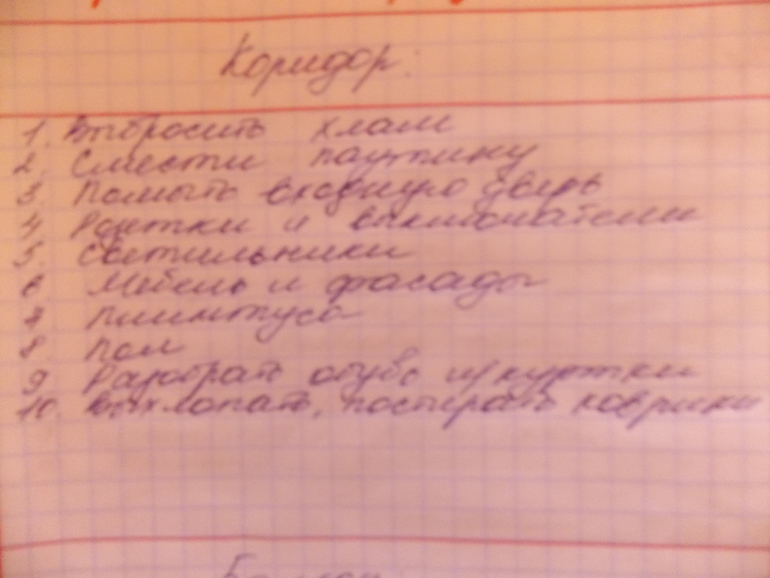 Коридор:
1. Выбросить хлам
2. Смести паутину
3 Помыть входную дверь
4 Розетки и выключатели
5. Светильники
6 Мебель и фасады
7 Плинтуса
8 Пол
9 Разобрать обувь и куртки
10. Выхлопать, постирать коврики